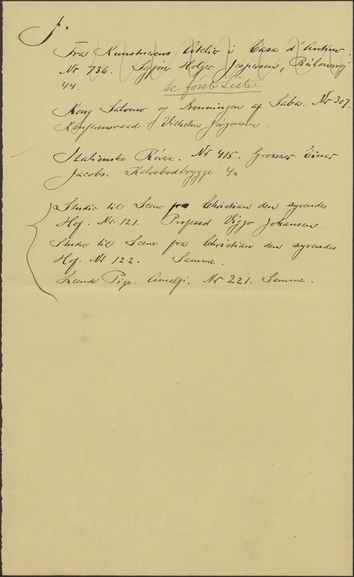 J.
Fra Kunstnerens Atelier i Casa d'Antino
Nr 736. Hofjuv. Holger Jespersen,
44. se første Liste
Kong Salomo og Dronningen af Saba. Nr 307.
Vilhelm Jørgensen.
Italienske Nr 415. Grosser Einer
Jacobs. Kalvebodbrygge 4
Studie til Scene fra Christian den syvendes
Hof. Nr. 121. Professor Viggo Johansen
Studie til Scene fra Christian den syvendes
Hof. Nr 122. Samme.
Pige. Amalfi. Nr 221. Samme.